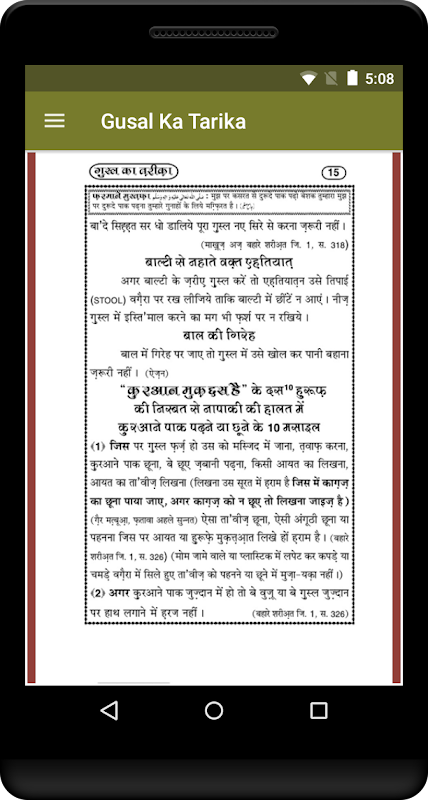 5:08
Gusal Ka Tarika
गुस्ल का तरीक़ा 15
फ़रमाने मुस्तफ़ा صلى الله تعالى عليه واله وسلم : मुझ पर कसरत से दुरूदे पाक पढ़ो बेशक तुम्हारा मुझ
पर दुरूदे पाक पढ़ना तुम्हारे गुनाहों के लिये मग़्फ़िरत है ।
बा'दे सिह़्ह़त सर धो डालिये पूरा ग़ुस्ल नए सिरे से करना ज़रूरी नहीं ।
(माख़ूज़ अज़ बहारे शरीअ़त जि. 1, स. 318)
बाल्टी से नहाते वक़्त एह़तियात़
अगर बाल्टी के ज़रीए़ ग़ुस्ल करें तो एह़तियात़न उसे तिपाई
(STOOL) वग़ैरा पर रख लीजिये ताकि बाल्टी में छींटें न आएं । नीज़
ग़ुस्ल में इस्ति'माल करने का मग भी फ़र्श पर न रखिये ।
बाल की गिरेह
बाल में गिरेह पर जाए तो ग़ुस्ल में उसे खोल कर पानी बहाना
ज़रूरी नहीं । (ऐज़न)
"क़ुरआन मुक़द्दस है" के दस¹⁰ हुरूफ़
की निस्बत से नापाकी की हालत में
क़ुरआने पाक पढ़ने या छूने के 10 मसाइल
(1) जिस पर ग़ुस्ल फ़र्ज़ हो उस को मस्जिद में जाना, त़वाफ़ करना,
क़ुरआने पाक छूना, बे छूए ज़बानी पढ़ना, किसी आयत का लिखना,
आयत का ता'वीज़ लिखना (लिखना उस सूरत में ह़राम है जिस में काग़ज़
का छूना पाया जाए, अगर काग़ज़ को न छूए तो लिखना जाइज़ है)
(ग़ैर मत़्बूआ़, फ़तावा अहले सुन्नत) ऐसा ता'वीज़ छूना, ऐसी अंगूठी छूना या
पहनना जिस पर आयत या हुरूफ़े मुक़त़्त़आ़त लिखे हों ह़राम है । (बहारे
शरीअ़त जि. 1, स. 326) (मोम जामे वाले या प्लास्टिक में लपेट कर कपड़े या
चमड़े वग़ैरा में सिले हुए ता'वीज़ को पहनने या छूने में मुज़ा-यक़ा नहीं ।)
(2) अगर क़ुरआने पाक जुज़्दान में हो तो बे वुज़ू या बे ग़ुस्ल जुज़्दान
पर हाथ लगाने में ह़रज नहीं । (बहारे शरीअ़त जि. 1, स. 326)